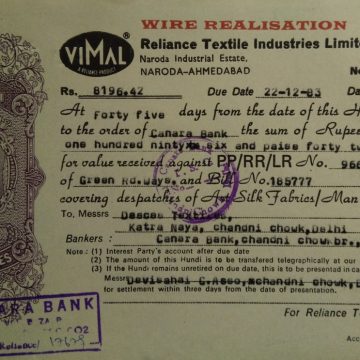 WIRE REALISATION
VIMAL®
A RELIANCE PRODUCT
Reliance Textile Industries Limite
Naroda Industrial Estate,
NARODA-AHMEDABAD
Rs. 8196.42 Due Date 22-12-83
At forty five days from the date of this H
to the order of Canara Bank the sum of Rupe
one hundred ninty six and paise forty tw
for value received against PP/RR/LR No. 966
of Green Rd.Ways. and Bill No. 185777
covering despatches of Art Silk Fabrics/Man
To : Messrs
Katra Naya, chandni chowk, Delhi
Bankers : Canara Bank, chandni chowk br.,
Note : (1) Interest Party's account after due date
(2) The amount of this Hundi is to be transfered telegraphically at our
(3) If the Hundi remains unretired on due date, this is to be presented in ca
Messrs chandni chowk, D
for settlement within three days from the date of presentation.
ARA BANK
For Reliance T
Reliance/ 17678
Acc